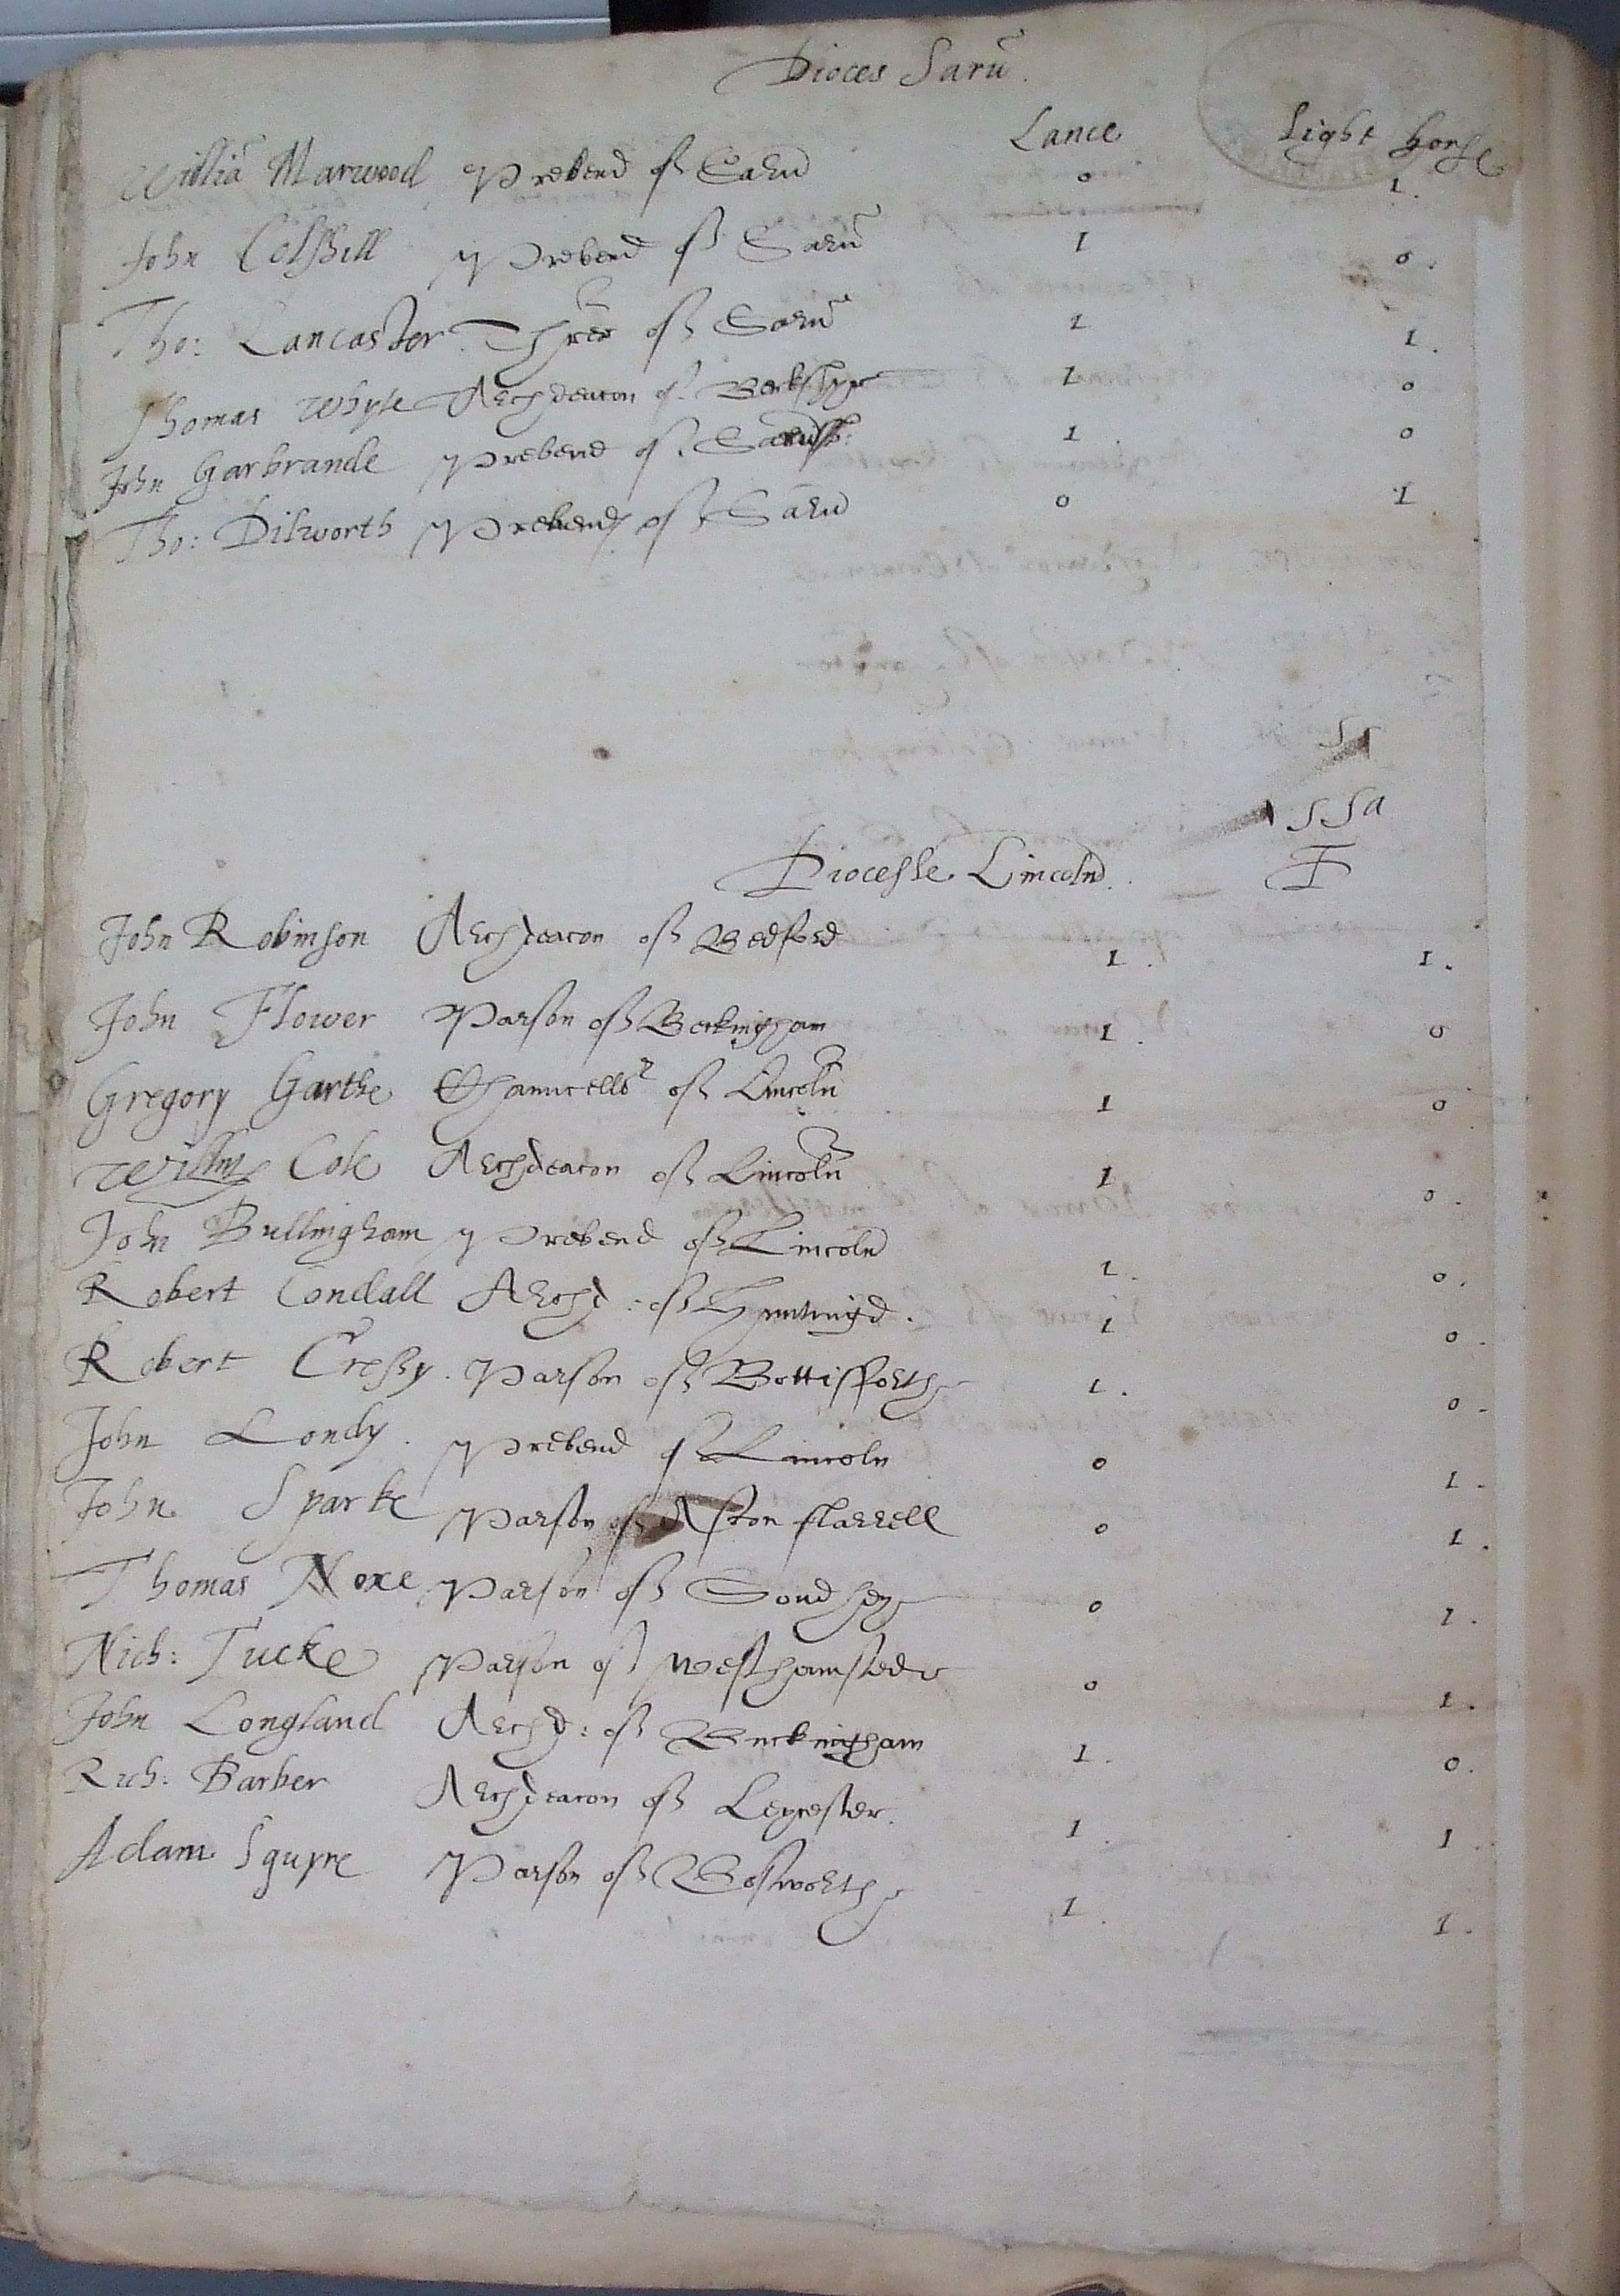 Dioces Sarū.
Lance Light horse
Williā Marwood Prebend of Sarū 0 1.
John Colshill Prebend of Sarū 1 0.
Tho: Lancaster Threr of Sarū 1 1.
Thomas Whyte Archdeacon of Berkshyre 1 0
John Garbrande Prebend of 1. 0
Tho: Dilworth Prebend of Sarū 0 1
SSa
Diocesse Lincoln.
John Robinson Archdeacon of Bedford 1. 1.
John Flower Parson of Beckingham 1. 0
Gregory Garthe Chauncellor of Lincoln 1 0
Willm Cole Archdeacon of Lincoln 1 0.
John Bullingham Prebend of Lincoln 1. 0.
Robert Condall Archd: of Huntingd. 1 0.
Robert Cressy. Parson of Bottisforth 1. 0.
John Londy. Prebend of Lincoln 0 1.
John Sparke Parson of Aston flarrell 0 1.
Thomas Noxe Parson of 0 1.
Nich: Tucke Parson of Westhamstede 0 1.
John Longland Archd: of Buckingham 1. 0.
Rich: Barber Archdeacon of Leycester. 1. 1
Adam Squyre Parson of Bosworth 1. 1.